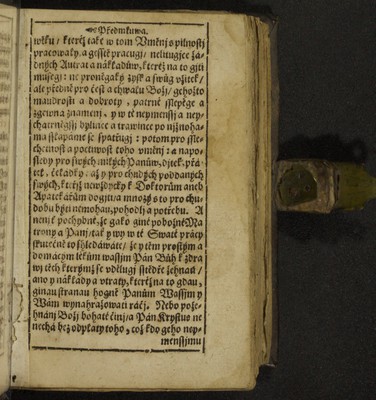 Předmluwa.
wěku / kteréž také w tom Vměnj s pilnostj
pracowaly, a gesstě pracugj / nelitugjce žá-
dných Autrat a nákladůw, kteréž na to gjti
musegj: ne pro nětgaký zysk a swůg vžitek /
ale předně pro čest a chwálu Božj / gehožto
maudrosti a dobroty, patrné sslepěge a
zgewná znamenj, y w té neymenssj a ney-
chatrněgssj bylince a trawince po njž noha-
ma sslapáme se spatřugj: potom pro sslech-
etnost a poctiwost toho vměnj: a napo-
sledy pro swých milých Panůw, djtek, přá-
tel, čeládky, až y pro chudých poddaných
swých, kteřjž newždycky k Doktorům aneb
Apatekářům dogjti / a mnozý s to pro chu-
dobu býti nemohau, pohodlj a potěchu. A
nenj pochybné, že gako giné pobožné Ma-
trony a Panj / tak y wy w té Swaté prácy
skutečně to shledáwáte / že y těm prostým a
domácým lékům wassjm Pán Bůh k zdra-
wj těch kterýmž se vdělugj sstědře žehnati /
ano y náklady a vtraty, kteréž na to gdau,
ginau stranau hogně Panům Wassjm y
Wám wynahražowati ráčj. Nebo požeh-
nánj Božj bohaté činj / a Pán Krystus ne-
nechá bez odplaty toho, což kdo geho ney-
menssjmu